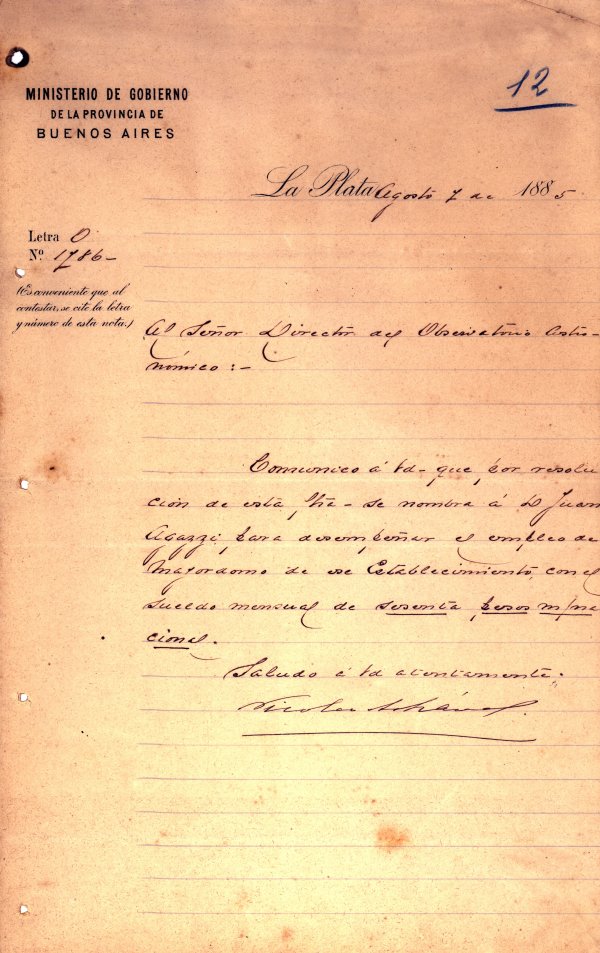 12
MINISTERIO DE GOBIERNO
DE LA PROVINCIA DE
BUENOS AIRES
La Plata Agosto 7 de 1885
Letra O
Nº 1786-
(Es conveniente que al
contestar, se cite la letra
y número de esta nota.)
Al Señor Director del Observatorio Astro-
nómico:-
Comunico á Vd- que por resolu
ción de esta fha- se nombra á D Juan
Agazzi, para desempeñar el empleo de
Mayordomo de ese Establecimiento, con el
sueldo mensual de sesenta pesos m/na
cional.
Saludo á Vd atentamente.
Nicolas Achával